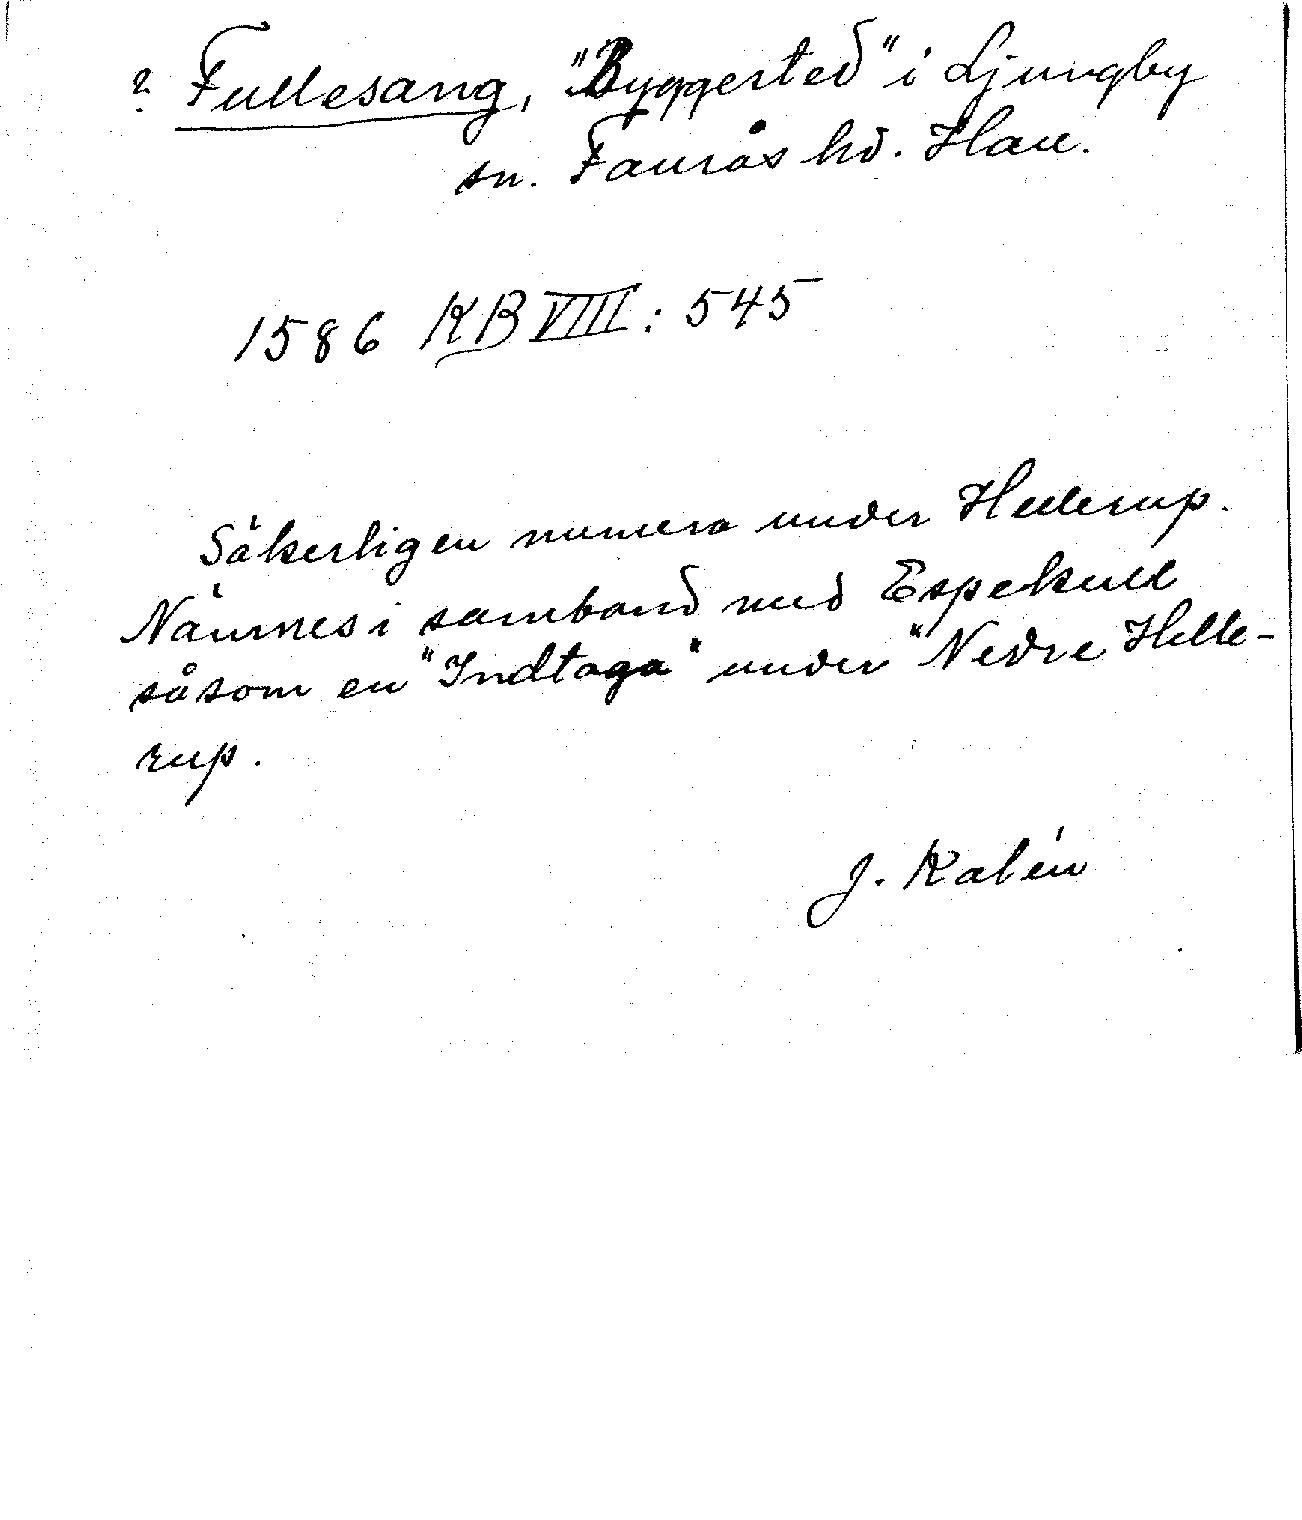 ? Fullesang, "Byggested" i Ljungby
sn. Faurås hd. Hall.
1586 KB VIII: 545
Säkerligen numera under Hellerup.
Nämnes i samband med Espekull
såsom en "Indtaga" under "Nedre Helle-
rup.
J. Kalén